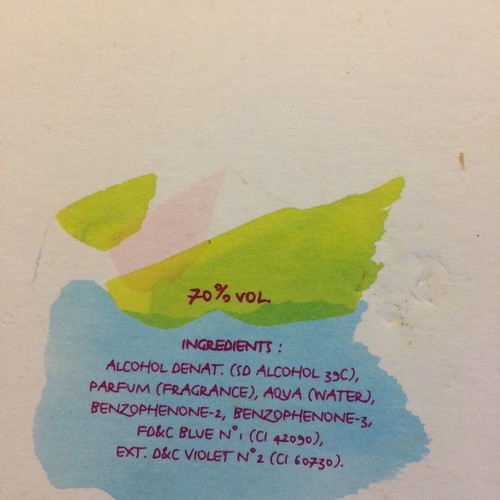 70% VOL.
INGREDIENTS :
ALCOHOL DENAT. (SD ALCOHOL 39C),
PARFUM (FRAGRANCE), AQUA (WATER),
BENZOPHENONE-2, BENZOPHENONE-3,
FD&C BLUE N°1 (CI 42090),
EXT. D&C VIOLET N°2 (CI 60730).